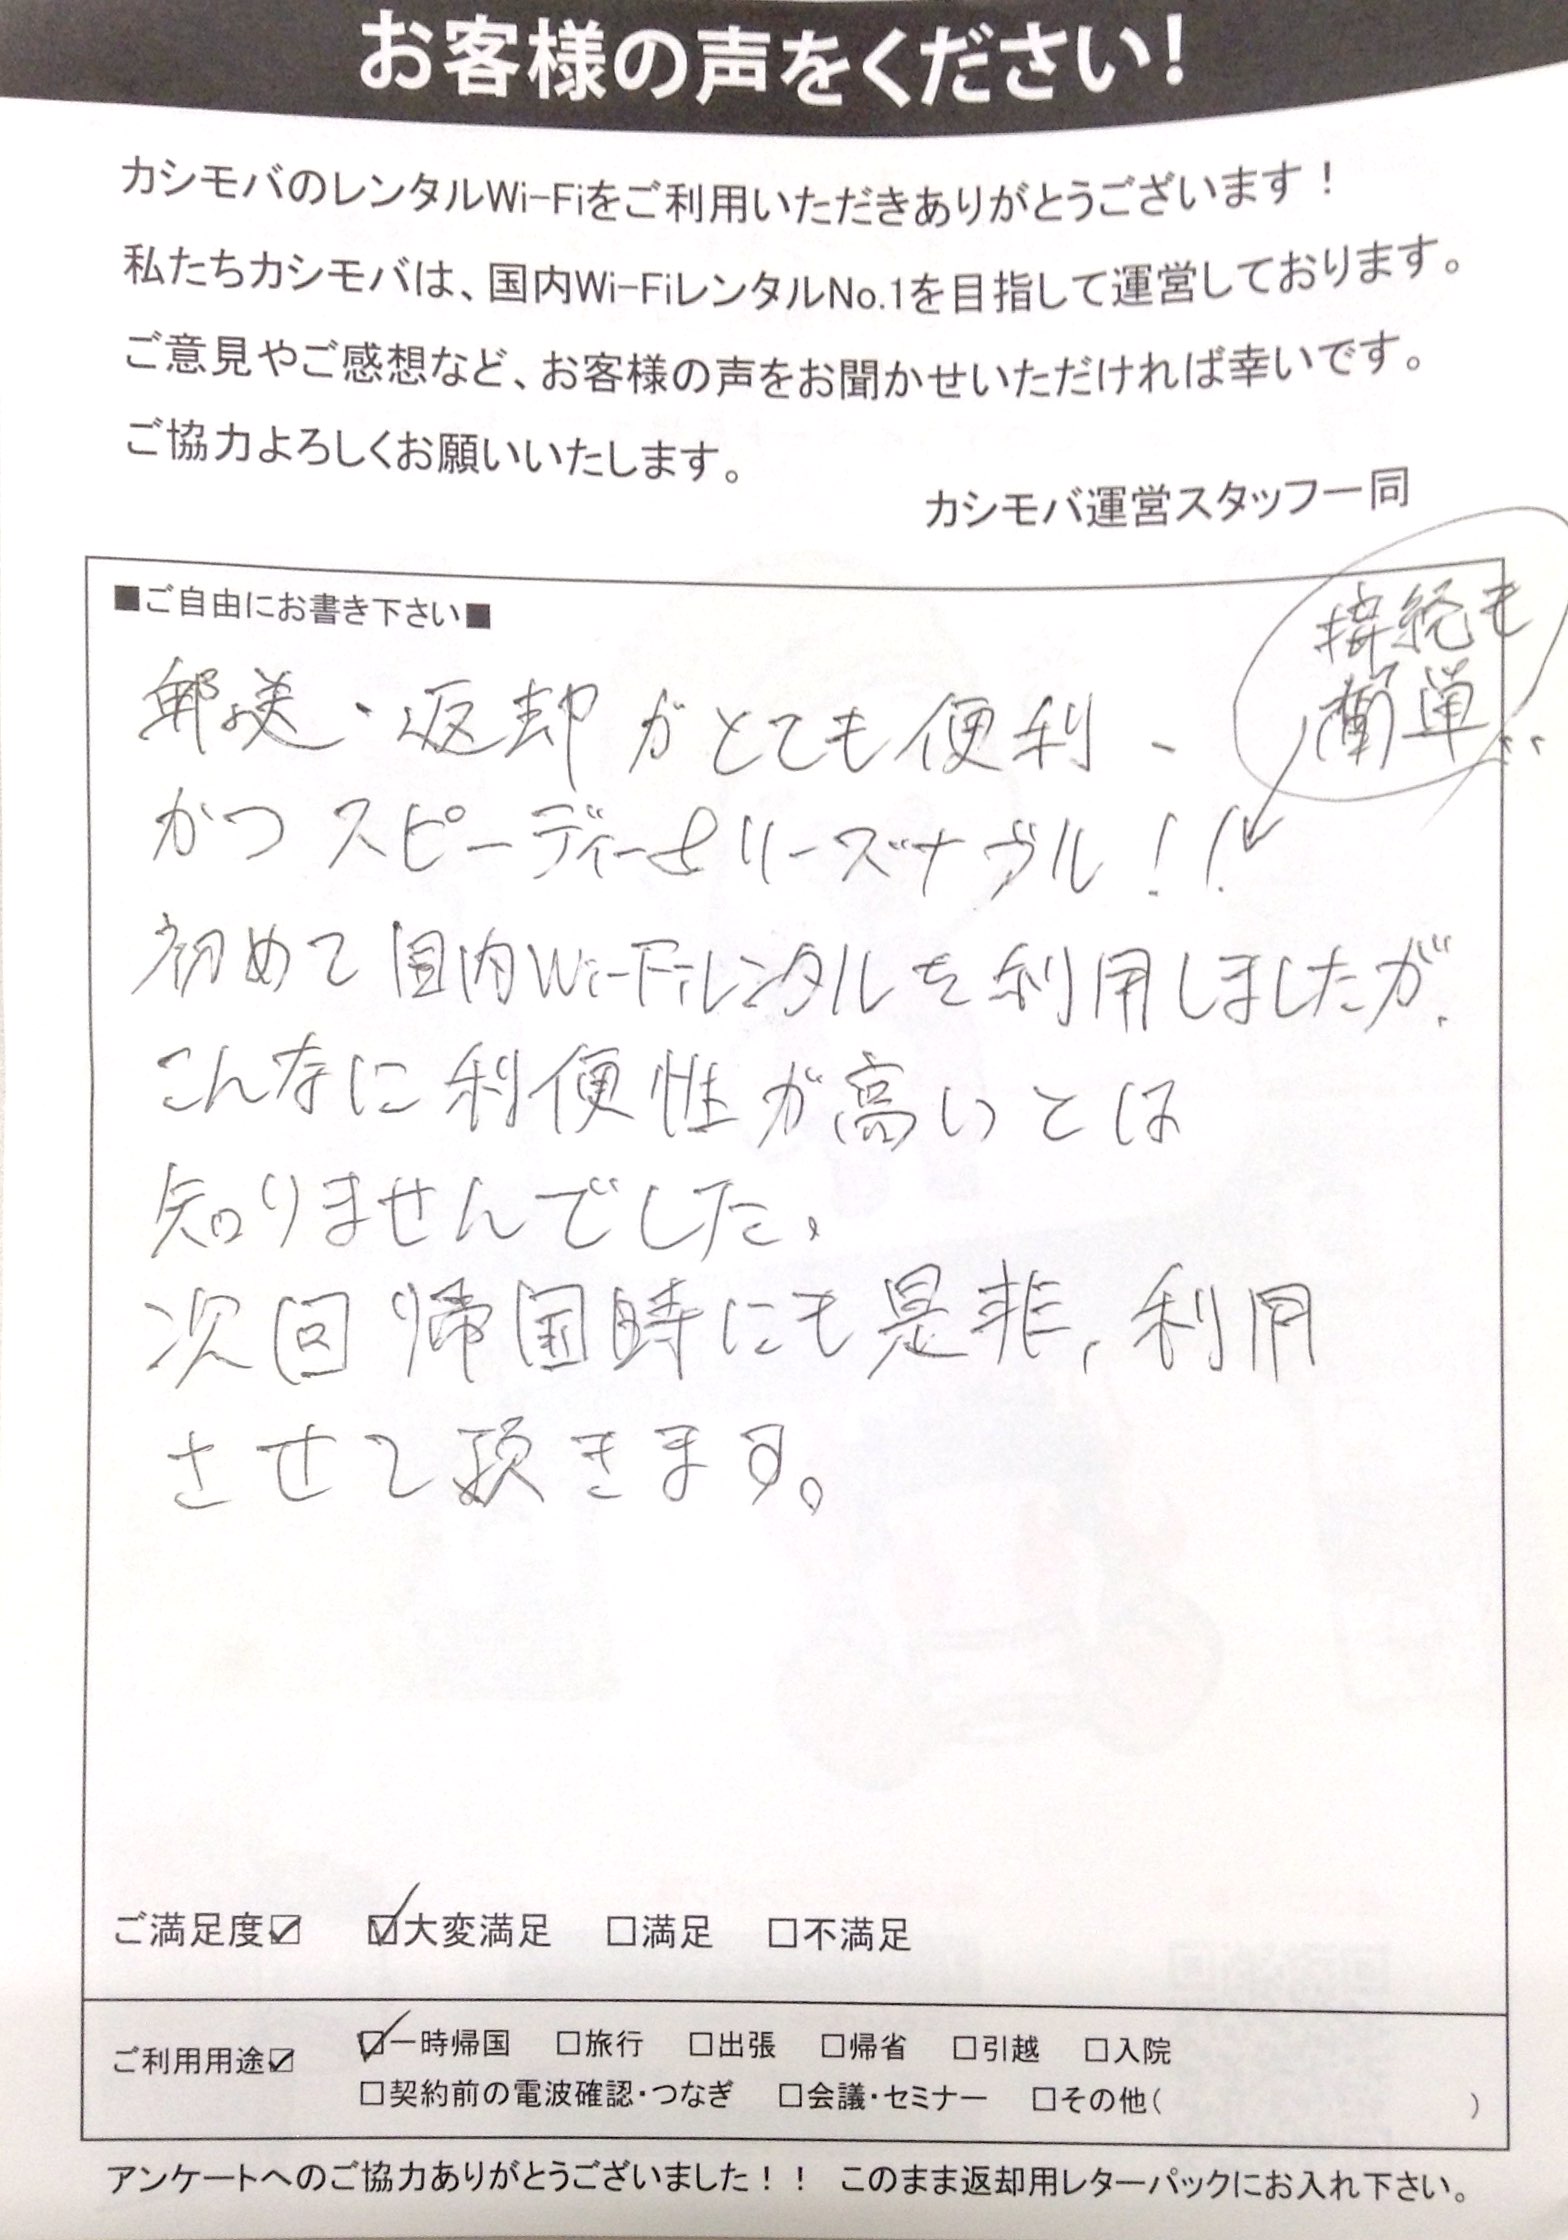 お客様の声をください！
カシモバのレンタルWi-Fiをご利用いただきありがとうございます！
私たちカシモバは、国内Wi-FiレンタルNo.1を目指して運営しております。
ご意見やご感想など、お客様の声をお聞かせいただければ幸いです。
ご協力よろしくお願いいたします。
カシモバ運営スタッフ一同
■ご自由にお書き下さい■
接続も
簡単
郵送・返却がとても便利、
かつスピーディー&リーズナブル！！
初めて国内Wi-Fiレンタルを利用しましたが、
こんなに利便性が高いとは
知りませんでした、
次回帰国時にも是非、利用
させて頂きます。
ご満足度☑ ☑大変満足 □満足 □不満足
ご利用用途☑ ☑一時帰国 □旅行 □出張 □帰省 □引越 □入院
□契約前の電波確認・つなぎ □会議・セミナー □その他( )
アンケートへのご協力ありがとうございました！！ このまま返却用レターパックにお入れ下さい。